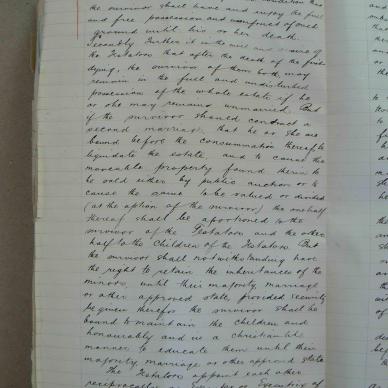 the survivor shall have and enjoy the full
and free possession and usufruct of such
ground until his or her death.
Secondly Further it is the will and desire of
the Testators that after the death of the first
dying, the survivor of them both may
remain in the full and undisturbed
possession of the whole estate if he
or she may remain unmarried. But
if the survivor should contract a
second marriage, that he or she are
bound before the consummation thereof to
liquidate the estate, and to cause the
moveable property found therein to
be sold either by public auction or to
cause the same to be valued or divided
(at the option of the survivor) the one half
thereof shall be apportioned to the
survivor of the Testators and the other
half to the Children of the Testators. But
the survivor shall notwithstanding have
the right to retain the inheritances of the
minors, until their majority, marriage
or other approved state, provided security
be given therefor the survivor shall be
bound to maintain the children and
honourably and in a christianlike
manner to educate them until their
majority, marriage or other approved state
The Testators appoint each other
reciprocally as Executor or Executrix of